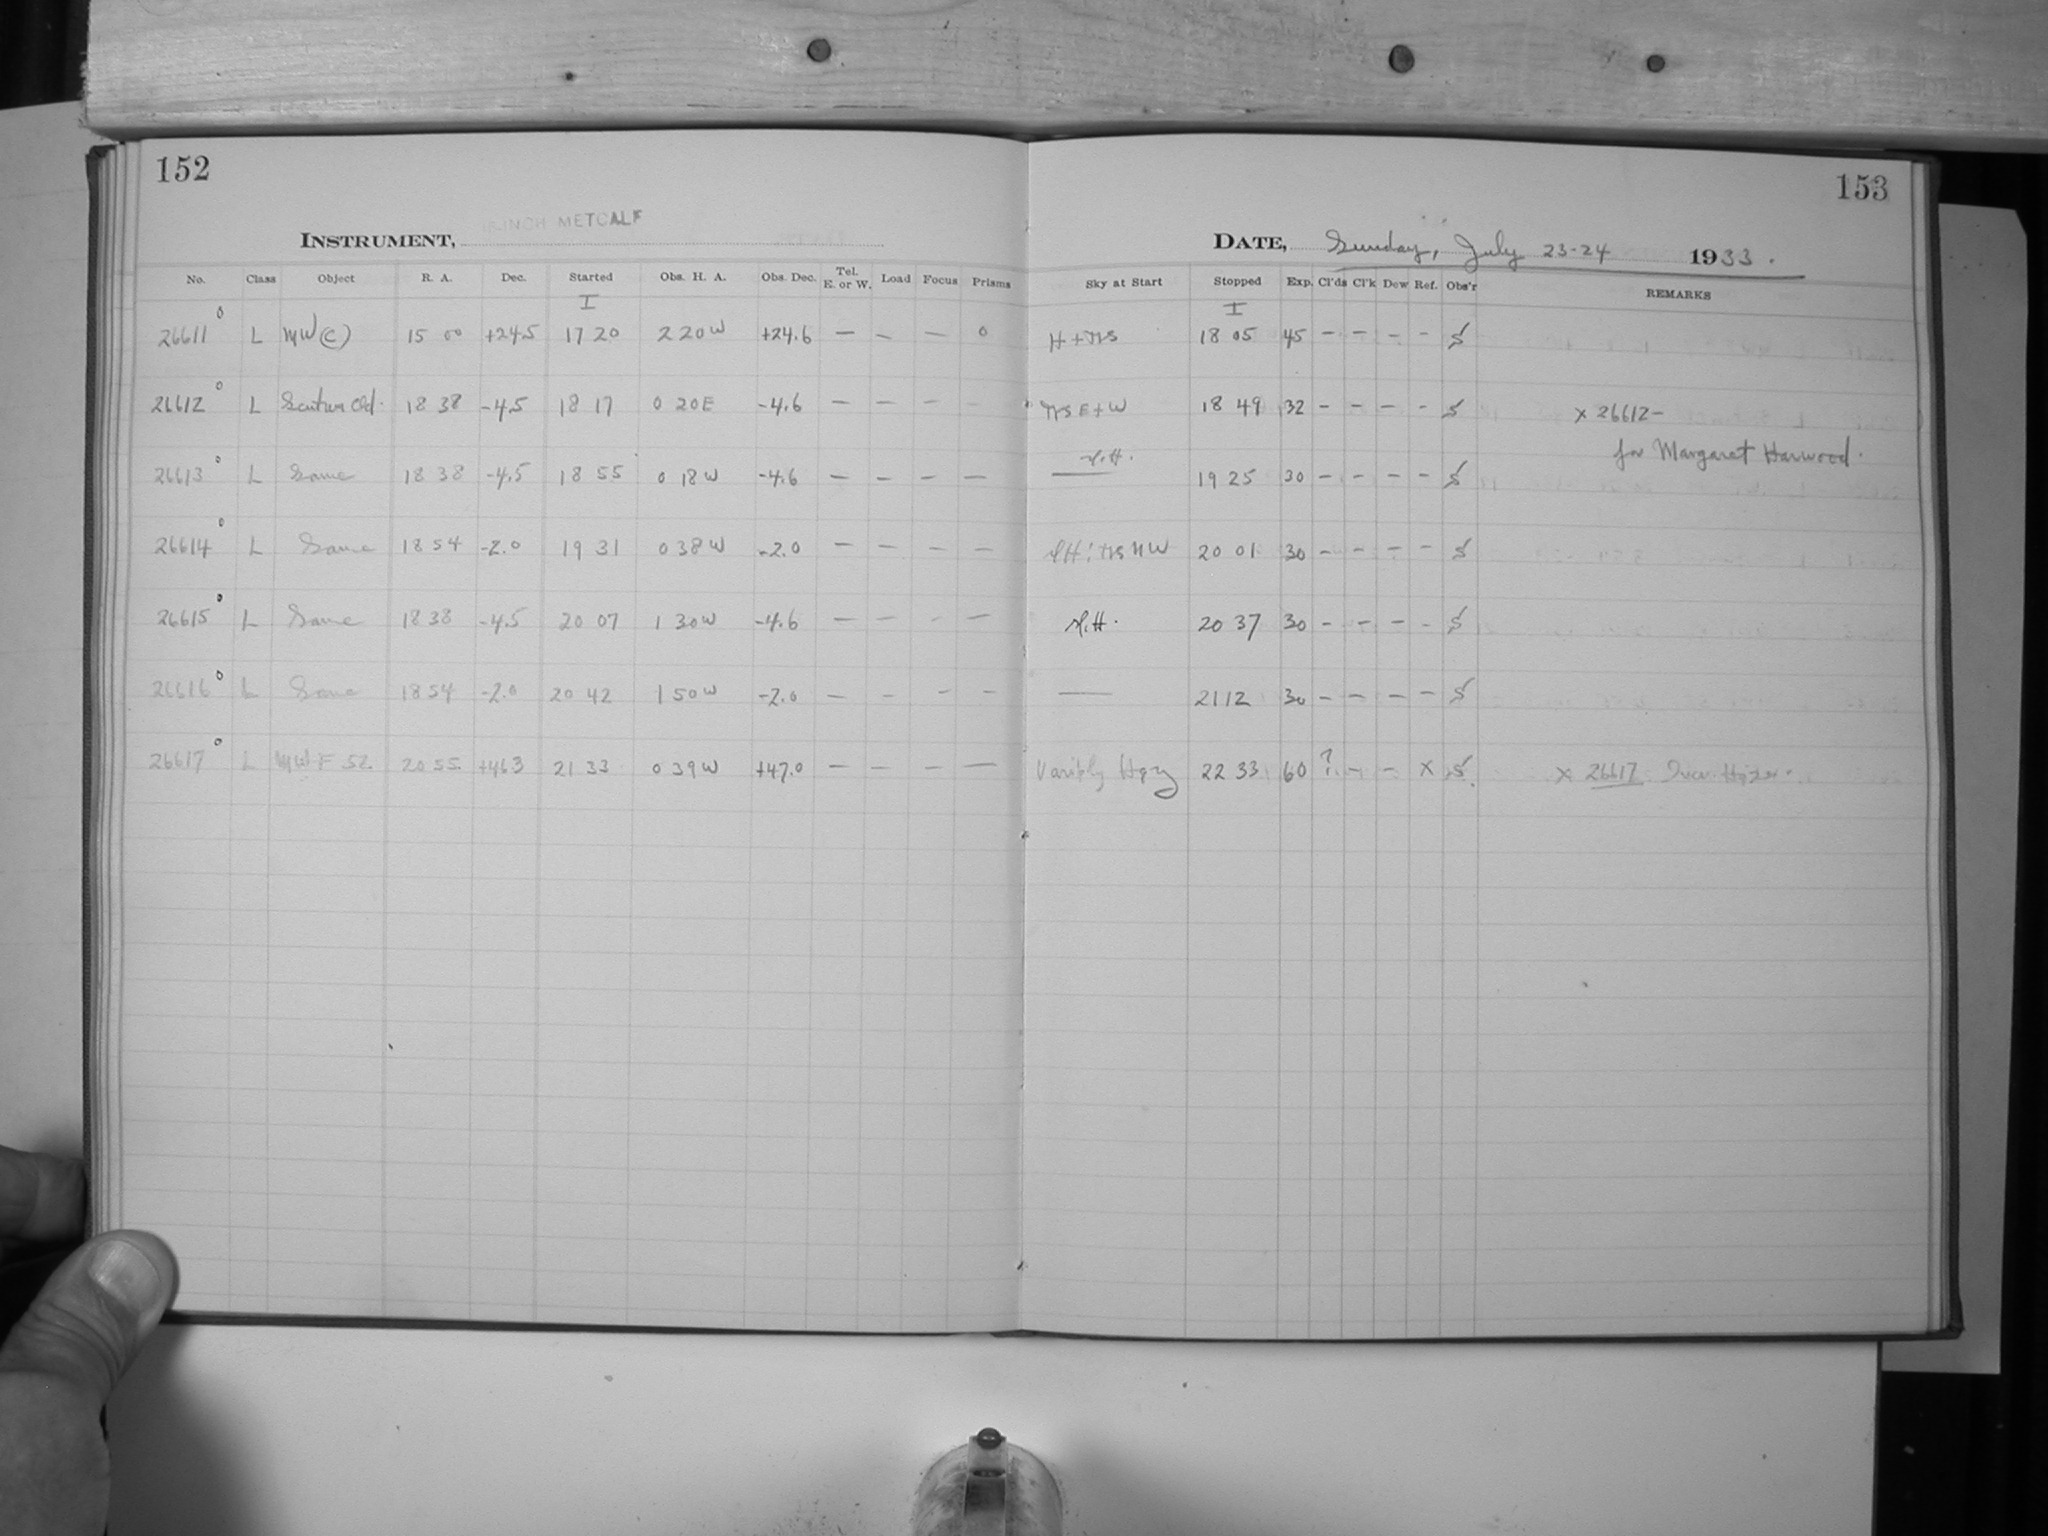 152
153
INSTRUMENT, -INCH METCALF
DATE, Sunday, July 23-24 1933.
No. Class Object R. A. Dec. Started Obs. H. A. Obs. Dec. Tel. E. or W. Load Focus Prisms Sky at Start Stopped Exp. Cl'ds Cl'k Dew Ref. Obs'r REMARKS
I I
26611 L MW(C) 15 00 +24.5 17 20 2 20W +24.6 — — — 0 18 05 45 - - - - S
26612 L Scutum Cld. 18 38 -4.5 18 17 0 20E -4.6 — — — — E+W 18 49 32 - - - - S x 26612-
for Margaret Harwood.
26613 L Same 18 38 -4.5 18 55 0 18W -4.6 — — — — 19 25 30 - - - - S
26614 L Same 18 54 -2.0 19 31 0 38W -2.0 — — — — 20 01 30 - - - - S
26615 L Same 18 38 -4.5 20 07 1 30W -4.6 — — — — 20 37 30 - - - - S
26616 L Same 18 54 -2.0 20 42 1 50W -2.0 — — — — — 21 12 30 - - - - S
26617 L MWF 52 20 55 +46.3 21 33 0 39W +47.0 — — — — Hazy 22 33 60 ? - - x S. x 26617